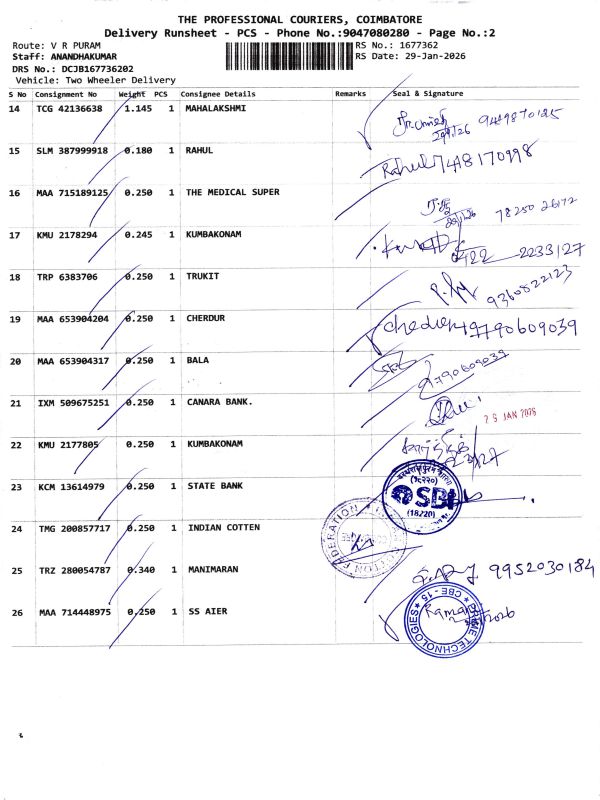 THE PROFESSIONAL COURIERS, COIMBATORE
Delivery Runsheet - PCS - Phone No.:9047080280 - Page No.:2
Route: V R PURAM
RS No.: 1677362
Staff: ANANDHAKUMAR
RS Date: 29-Jan-2026
DRS No.: DCJB167736202
Vehicle: Two Wheeler Delivery
S No Consignment No Weight PCS Consignee Details Remarks Seal & Signature
14 TCG 42136638 1.145 1 MAHALAKSHMI
9449870125
15 SLM 387999918 0.180 1 RAHUL Rahul 7418170998
16 MAA 715189125 0.250 1 THE MEDICAL SUPER
78250 26172
17 KMU 2178294 0.245 1 KUMBAKONAM
0422 2233127
18 TRP 6383706 0.250 1 TRUKIT
9360822123
19 MAA 653904204 0.250 1 CHERDUR 9790609039
20 MAA 653904317 0.250 1 BALA
9790609039
21 IXM 509675251 0.250 1 CANARA BANK.
29 JAN 2026
22 KMU 2177805 0.250 1 KUMBAKONAM
23 KCM 13614979 0.250 1 STATE BANK
SBI
(18220)
24 TMG 200857717 0.250 1 INDIAN COTTEN
25 TRZ 280054787 0.340 1 MANIMARAN 9952030184
26 MAA 714448975 0.250 1 SS AIER
Raman
PRIME TECHNOLOGIES
CBE - 15